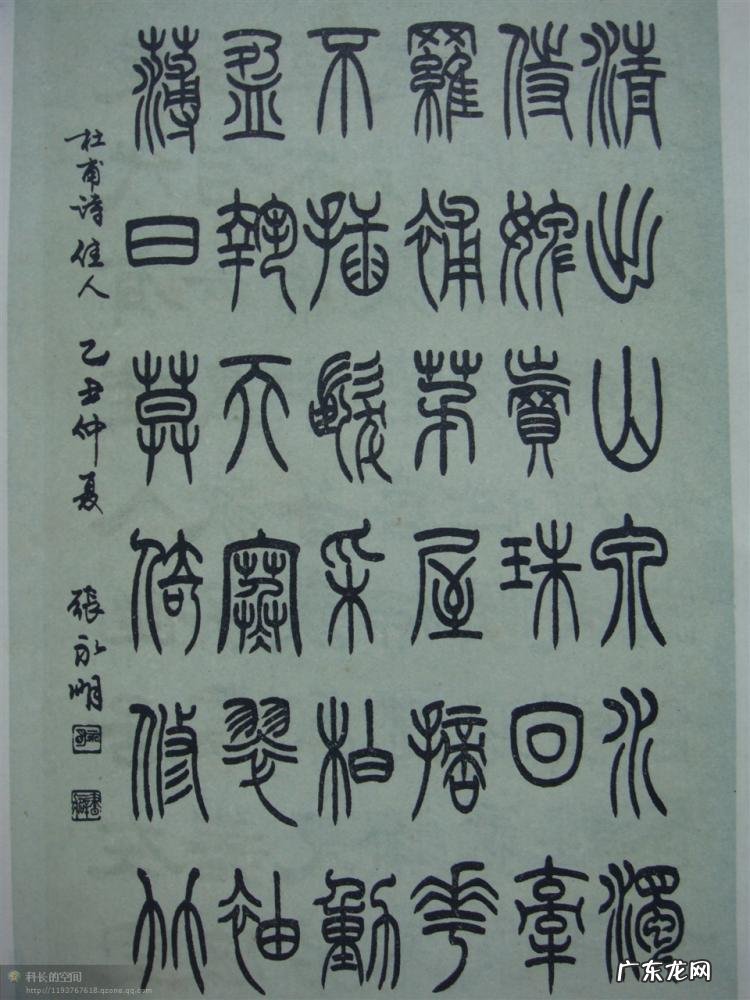 清出山泉水濁
侍婢賣珠回牽
蘿補茅屋摘花
不插髮采柏動
盈執天寒翠袖
薄日莫倚修竹
杜甫诗佳人 乙丑仲夏 張永明
科长的空间
http://1193767618.qzone.qq.com
广东龙网